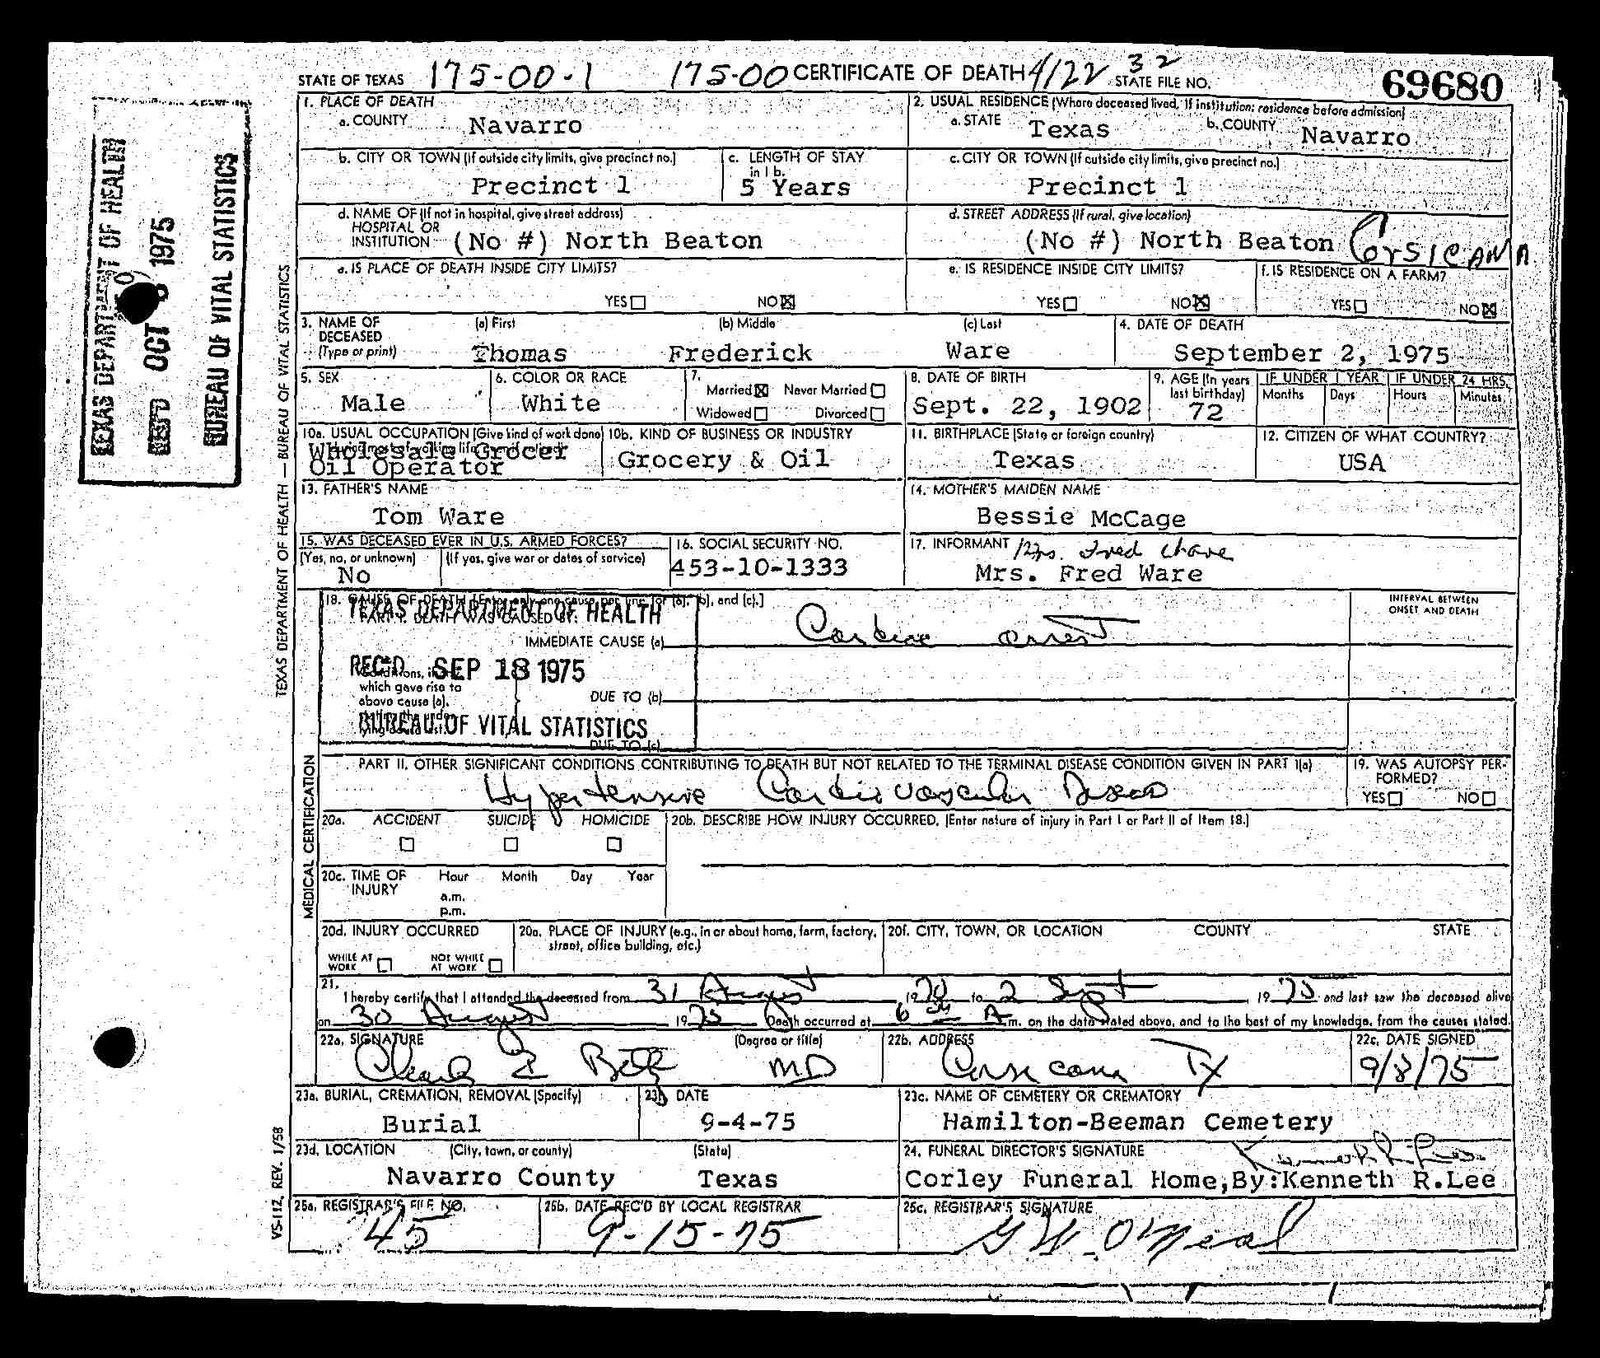 STATE OF TEXAS 175-00-1 175-00 CERTIFICATE OF DEATH 4/22 32 STATE FILE NO. 69680
1. PLACE OF DEATH
a. COUNTY Navarro
2. USUAL RESIDENCE (Where deceased lived. If institution: residence before admission)
a. STATE Texas b. COUNTY Navarro
b. CITY OR TOWN (If outside city limits, give precinct no.)
Precinct 1
c. LENGTH OF STAY in 1b.
5 Years
c. CITY OR TOWN (If outside city limits, give precinct no.)
Precinct 1
d. NAME OF (If not in hospital, give street address)
HOSPITAL OR
INSTITUTION (No #) North Beaton
d. STREET ADDRESS (If rural, give location)
(No #) North Beaton Corsicana
e. IS PLACE OF DEATH INSIDE CITY LIMITS?
YES NO
e. IS RESIDENCE INSIDE CITY LIMITS?
YES NO
f. IS RESIDENCE ON A FARM?
YES NO
3. NAME OF DECEASED (Type or print) (a) First (b) Middle (c) Last
Thomas Frederick Ware
4. DATE OF DEATH
September 2, 1975
5. SEX
Male
6. COLOR OR RACE
White
7. Married Never Married
Widowed Divorced
8. DATE OF BIRTH
Sept. 22, 1902
9. AGE (In years last birthday)
72
IF UNDER 1 YEAR IF UNDER 24 HRS.
Months Days Hours Minutes
10a. USUAL OCCUPATION (Give kind of work done
Wholesale Grocer
Oil Operator
10b. KIND OF BUSINESS OR INDUSTRY
Grocery & Oil
11. BIRTHPLACE (State or foreign country)
Texas
12. CITIZEN OF WHAT COUNTRY?
USA
13. FATHER'S NAME
Tom Ware
14. MOTHER'S MAIDEN NAME
Bessie McCage
15. WAS DECEASED EVER IN U.S. ARMED FORCES?
(Yes, no, or unknown) (If yes, give war or dates of service)
No
16. SOCIAL SECURITY NO.
453-10-1333
17. INFORMANT Mrs. Fred Ware
Mrs. Fred Ware
18. CAUSE OF DEATH [Enter only one cause per line for (a), (b), and (c).]
PART I. DEATH WAS CAUSED BY:
INTERVAL BETWEEN
ONSET AND DEATH
TEXAS DEPARTMENT OF HEALTH
IMMEDIATE CAUSE (a) Cardiac arrest
REC'D SEP 18 1975
which gave rise to
above cause (a),
DUE TO (b)
BUREAU OF VITAL STATISTICS
DUE TO (c)
PART II. OTHER SIGNIFICANT CONDITIONS CONTRIBUTING TO DEATH BUT NOT RELATED TO THE TERMINAL DISEASE CONDITION GIVEN IN PART I(a)
Hypertensive Cardiovascular Disease
19. WAS AUTOPSY PERFORMED?
YES NO
20a. ACCIDENT SUICIDE HOMICIDE
20b. DESCRIBE HOW INJURY OCCURRED. (Enter nature of injury in Part I or Part II of Item 18.)
20c. TIME OF INJURY Hour Month Day Year
a.m.
p.m.
20d. INJURY OCCURRED
WHILE AT WORK NOT WHILE AT WORK
20e. PLACE OF INJURY (e.g., in or about home, farm, factory, street, office building, etc.)
20f. CITY, TOWN, OR LOCATION COUNTY STATE
21. I hereby certify that I attended the deceased from 31 August 1970 to 2 Sept 1975 and last saw the deceased alive
on 30 August 1975 Death occurred at 6 A m. on the date stated above, and to the best of my knowledge, from the causes stated.
22a. SIGNATURE (Degree or title)
MD
22b. ADDRESS
Corsicana TX
22c. DATE SIGNED
9/8/75
23a. BURIAL, CREMATION, REMOVAL (Specify)
Burial
23b. DATE
9-4-75
23c. NAME OF CEMETERY OR CREMATORY
Hamilton-Beeman Cemetery
23d. LOCATION (City, town, or county) (State)
Navarro County Texas
24. FUNERAL DIRECTOR'S SIGNATURE
Corley Funeral Home, By: Kenneth R. Lee
25a. REGISTRAR'S FILE NO.
45
25b. DATE REC'D BY LOCAL REGISTRAR
9-15-75
25c. REGISTRAR'S SIGNATURE
G W. O'Neal
TEXAS DEPARTMENT OF HEALTH
REC'D OCT 1975
BUREAU OF VITAL STATISTICS
TEXAS DEPARTMENT OF HEALTH — BUREAU OF VITAL STATISTICS
MEDICAL CERTIFICATION
VS-112, REV. 1/58